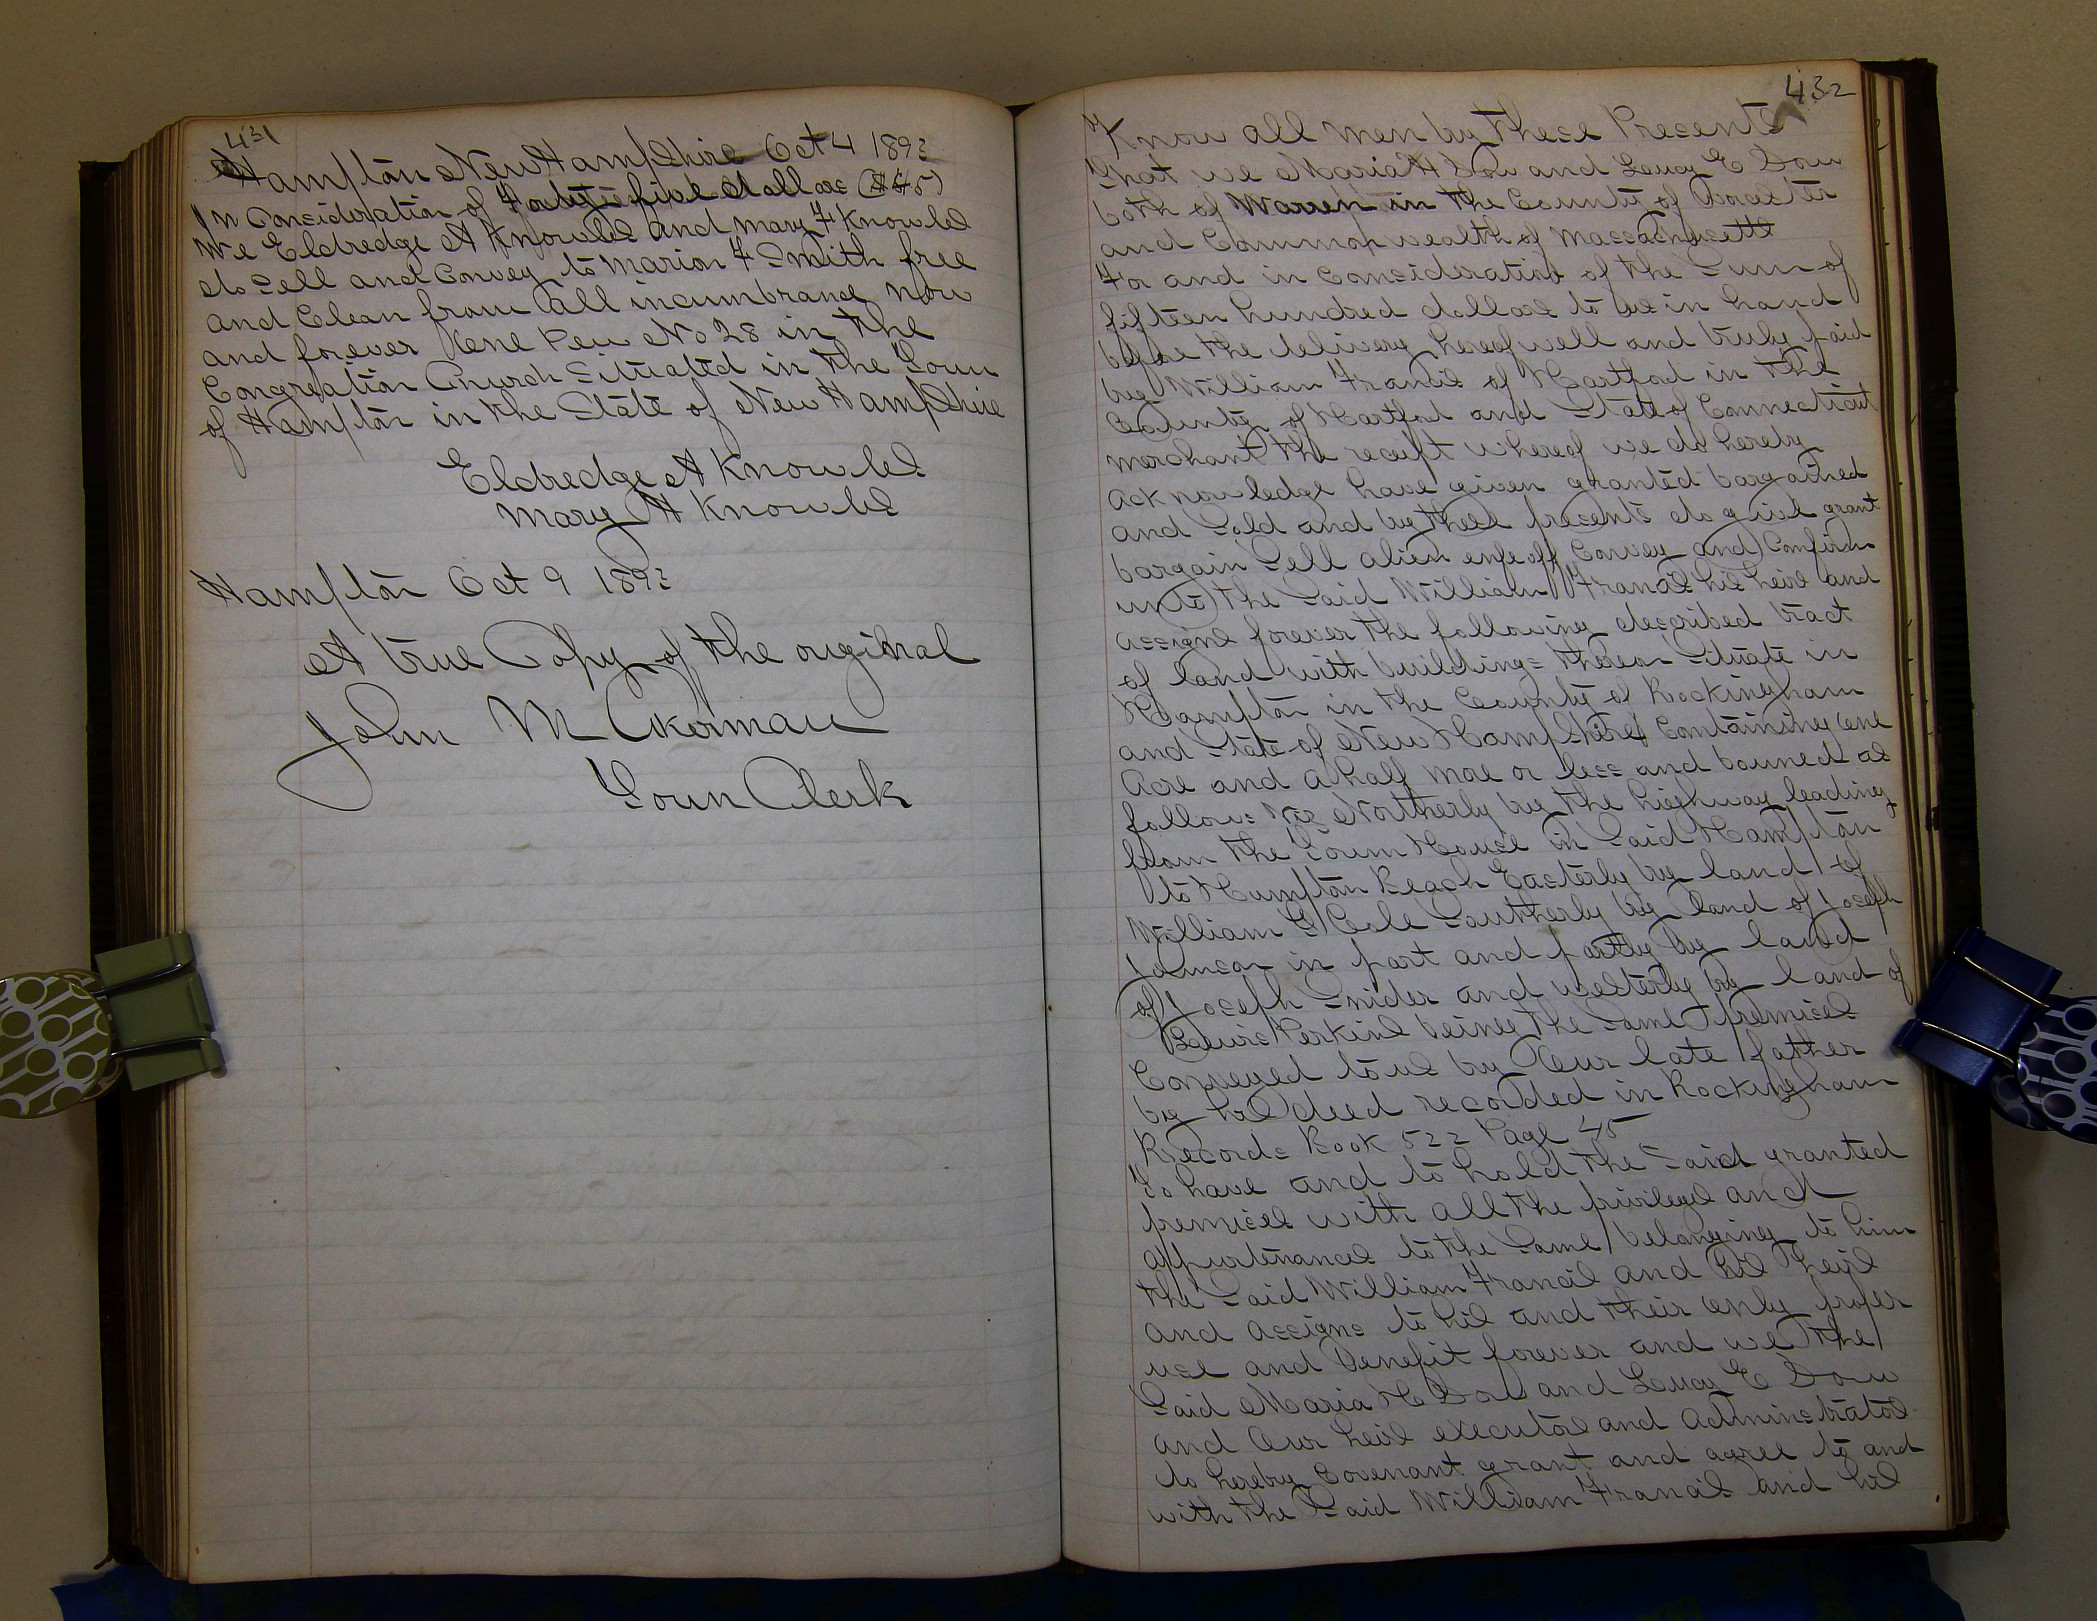 431
Hampton New Hampshire Oct 4 1893
In Consideration of Forty five dollars ($45)
We Eldredge A Knowles and Mary F Knowles
do sell and Convey to Marion F Smith free
and Clean from all incumbrance now
and forever One Pew No 28 in the
Congreation Church Situated in the Town
of Hampton in the State of New Hampshire
Eldredge A Knowles
Mary A Knowles
Hampton Oct 9 1893
A true Copy of the original
John M Akerman
Town Clerk
432
Know all men by these Presents
That we Maria H Dow and Lucy E Dow
both of Warren in the County of Worcester
and Commonwealth of Massachusetts
For and in Consideration of the Sum of
fifteen hundred dollars to us in hand
before the delivery hereof well and truly paid
by William Francis of Hartford in the
County of Hartford and State of Connecticut
merchant the receipt whereof we do hereby
acknowledge have given granted bargained
and Sold and by these presents do give grant
bargain Sell alien enfeoff Convey and Confirm
unto the Said William Francis his heirs and
assigns forever the following described tract
of land with buildings thereon Situate in
Hampton in the County of Rockingham
and State of New Hampshire Containing one
Acre and a half more or less and bouned as
follows Viz Northerly by the highway leading
from the Town House in Said Hampton
to Hampton Beach Easterly by land of
William G Cole Southerly by land of Joseph
Johnson in part and partly by land
of Joseph Snider and westerly by land of
Lewis Perkins being the Same premises
Conveyed to us by Our late father
by his deed recorded in Rockingham
Records Book 522 Page 45
To have and to hold the Said granted
premises with all the privileges and
appurtenances to the Same belonging to him
the Said William Francis and his heirs
and assigns to his and their only proper
use and Benefit forever and we the
Said Maria H Dow and Lucy E Dow
and Our heirs executors and administrators
do hereby Covenant grant and agree to and
with the Said William Francis and his